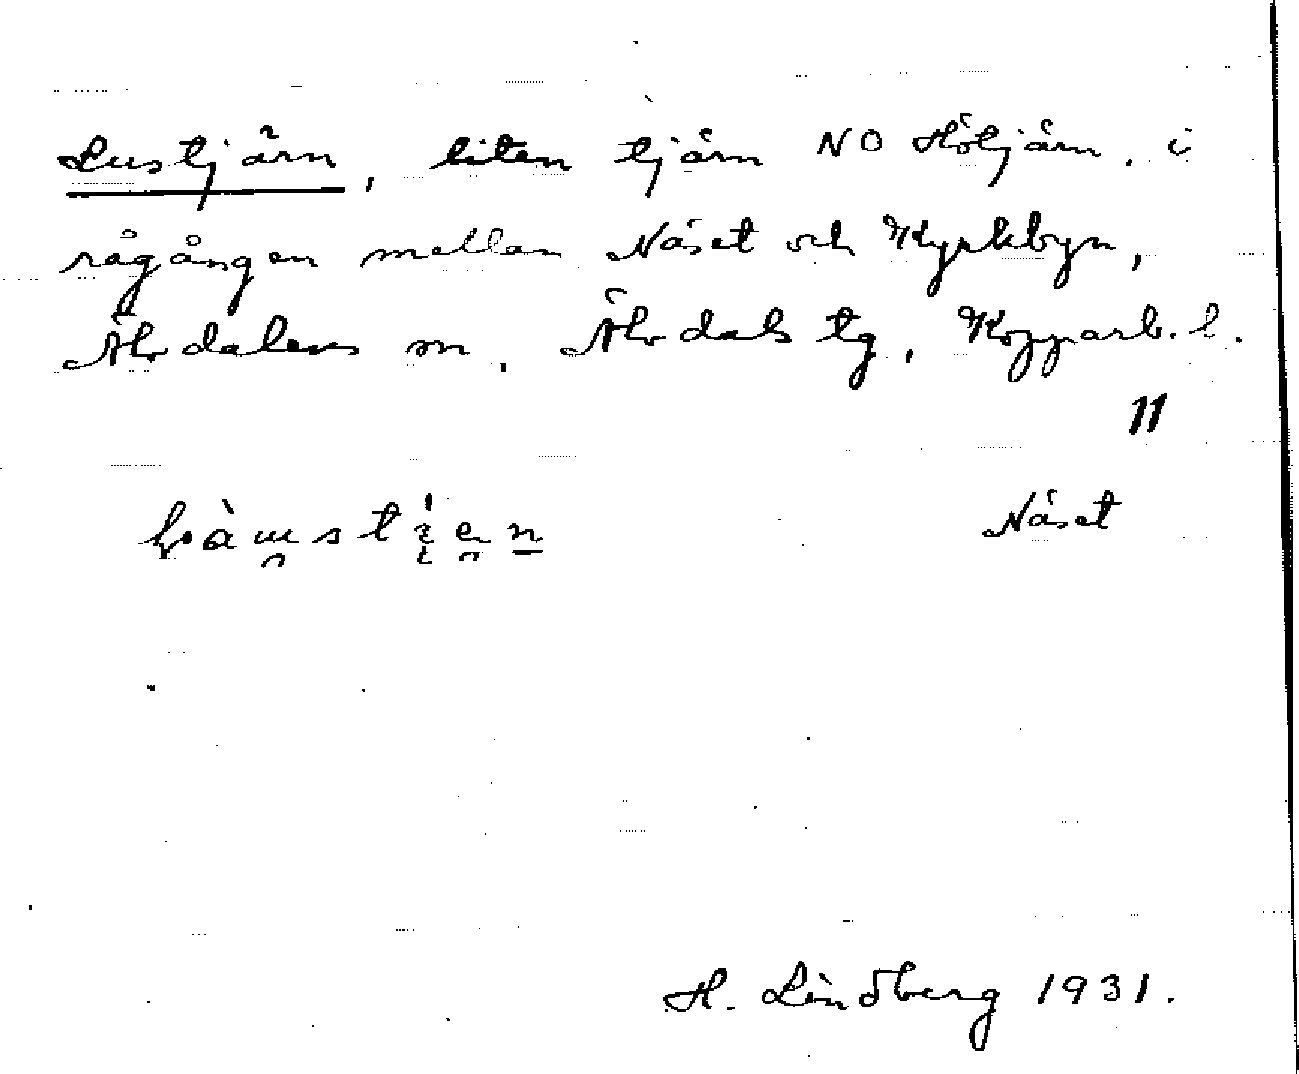 Lustjärn, liten tjärn NO Höljärn. i
rågången mellan Näset och Kyrkbyn,
Älvdalens sn. Älvdals tg, Kopparb. l.
11
Näset
H. Lindberg 1931.